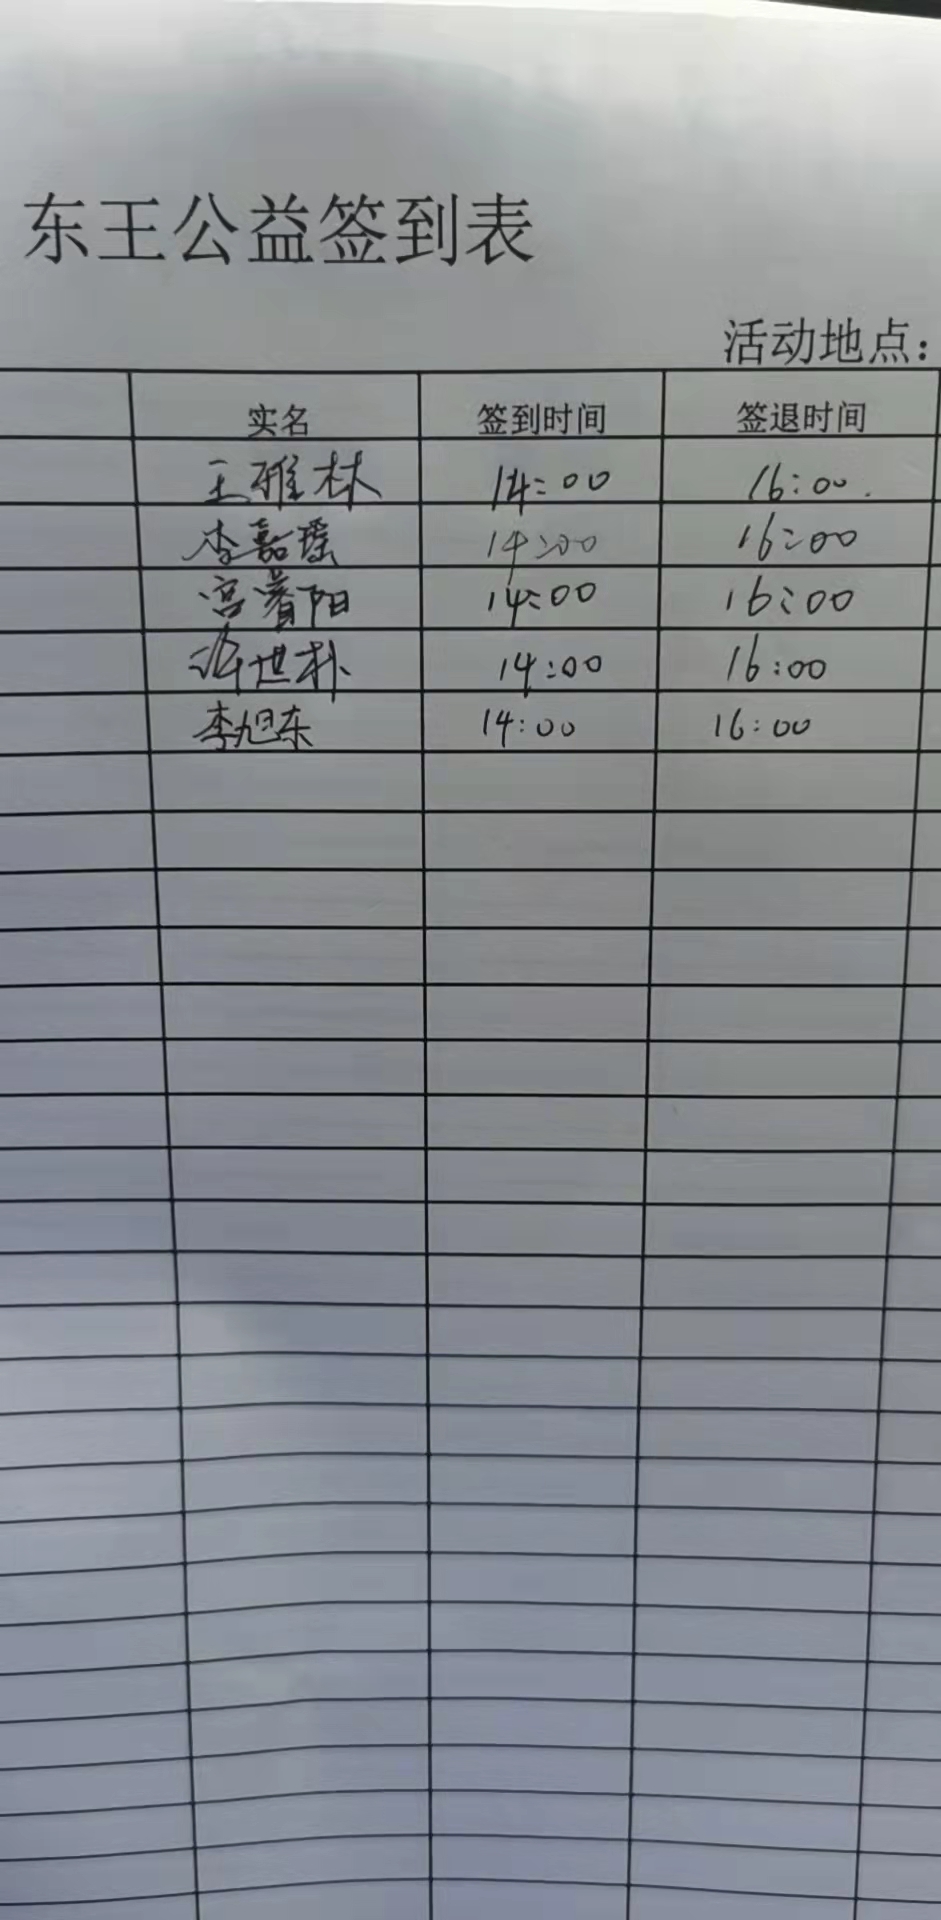 东王公益签到表
活动地点：
实名 签到时间 签退时间
王雅林 14:00 16:00.
李嘉瑶 14:00 16:00
宫睿阳 14:00 16:00
许世朴 14:00 16:00
李旭东 14:00 16:00